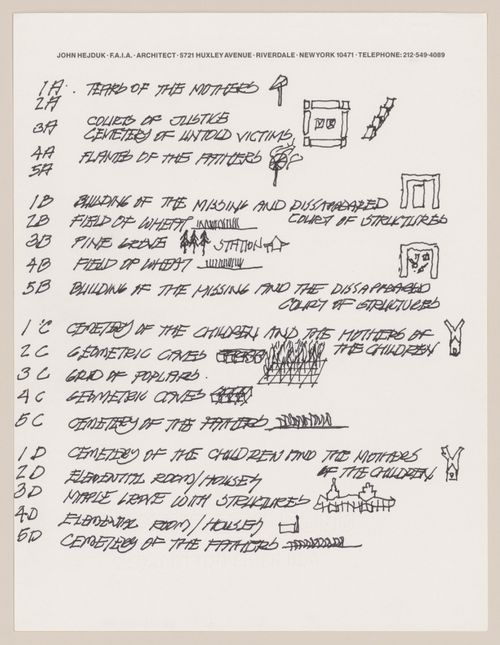 JOHN HEJDUK · F.A.I.A. · ARCHITECT · 5721 HUXLEY AVENUE · RIVERDALE · NEW YORK 10471 · TELEPHONE: 212-549-4089
1A. TEARS OF THE MOTHERS
2A
3A COURTS OF JUSTICE
CEMETERY OF UNTOLD VICTIMS
4A FLAMES OF THE FATHERS
5A
1B BUILDING OF THE MISSING AND DISSAPAEARED
2B FIELD OF WHEAT COURT OF STRUCTURES
3B PINE GROVE STATION
4B FIELD OF WHEAT
5B BUILDING OF THE MISSING AND THE DISSAPAEARED
COURT OF STRUCTURES
1C CEMETERY OF THE CHILDREN AND THE MOTHERS OF
2C GEOMETRIC CAVES THE CHILDREN
3C GRID OF POPLARS.
4C GEOMETRIC CAVES
5C CEMETERY OF THE FATHERS
1D CEMETERY OF THE CHILDREN AND THE MOTHERS
2D ELEMENTAL ROOM/HOUSES OF THE CHILDREN
3D MAPLE GROVE WITH STRUCTURES
4D ELEMENTAL ROOM/HOUSES
5D CEMETERY OF THE FATHERS